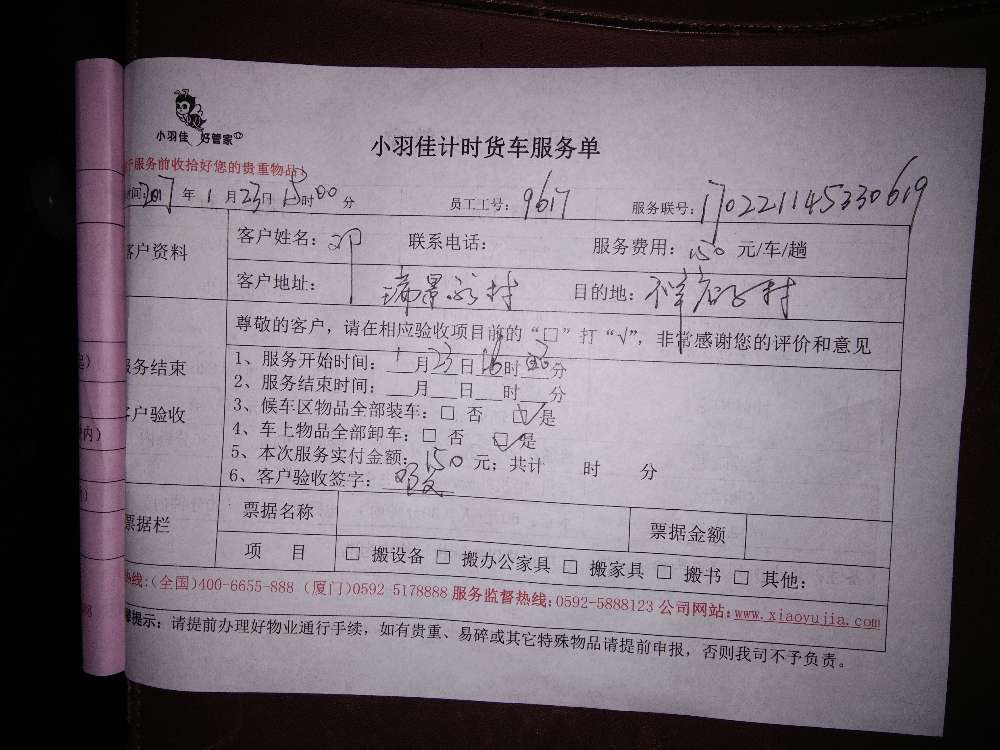 小羽佳 好管家
小羽佳计时货车服务单
服务前收拾好您的贵重物品）
间：2017 年 1 月 23 日 15 时 00 分 员工工号：9617 服务联号：170221145330619
客户资料 客户姓名：邓 联系电话： 服务费用：150 元/车/趟
客户地址： 瑞景新村 目的地：祥店新村
尊敬的客户，请在相应验收项目前的“□”打“√”，非常感谢您的评价和意见
服务结束
客户验收
1、服务开始时间： 1 月 23 日 时 分
2、服务结束时间： 月 日 时 分
3、候车区物品全部装车：□ 否 ☑是
4、车上物品全部卸车：□ 否 ☑是
5、本次服务实付金额：150 元；共计 时 分
6、客户验收签字：邓
票据栏 票据名称 票据金额
项 目 □ 搬设备 □ 搬办公家具 □ 搬家具 □ 搬书 □ 其他：
热线：(全国)400-6655-888 (厦门)0592-5178888 服务监督热线：0592-5888123 公司网站：www.xiaoyujia.com
提示：请提前办理好物业通行手续，如有贵重、易碎或其它特殊物品请提前申报，否则我司不予负责。